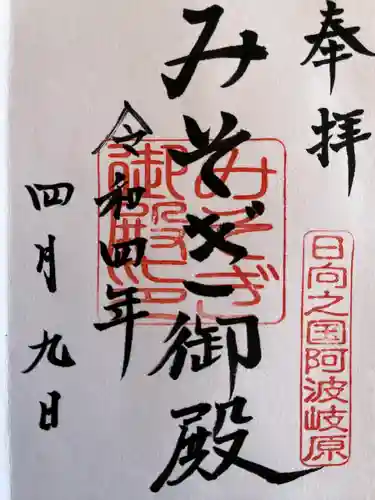 奉拝
日向之国阿波岐原
みそぎ御殿
みそぎ
御殿印
令和四年
四月九日